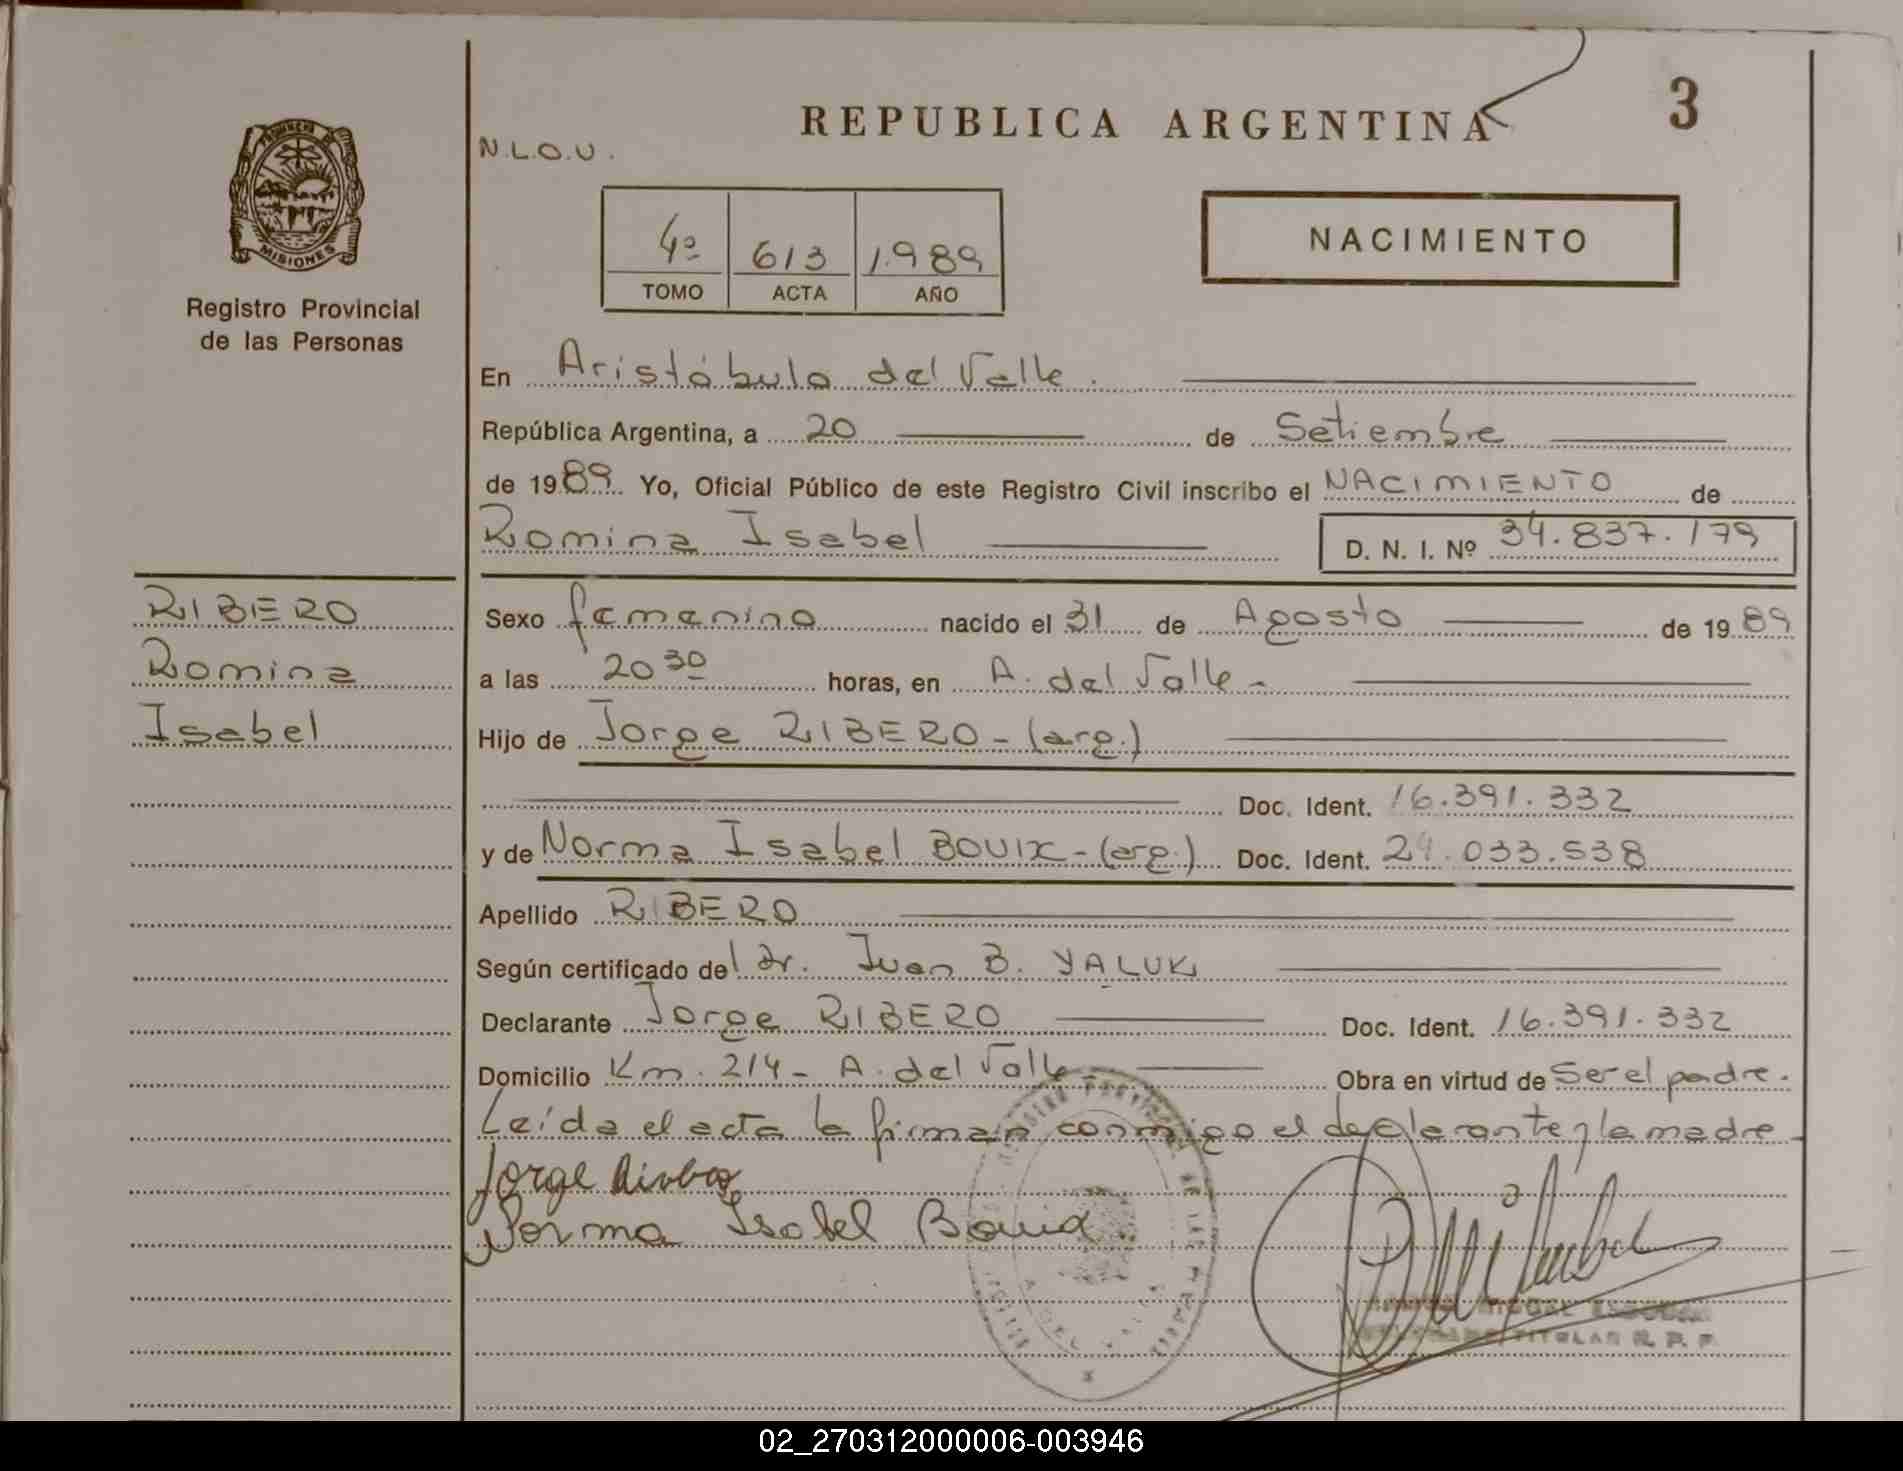 REPUBLICA ARGENTINA
3
N.L.O.U.
PROVINCIA DE
MISIONES
Registro Provincial
de las Personas
4º 613 1.989
TOMO ACTA AÑO
NACIMIENTO
En Aristóbulo del Valle.
República Argentina, a 20 de Setiembre
de 1989. Yo, Oficial Público de este Registro Civil inscribo el NACIMIENTO de
Romina Isabel D. N. I. Nº 34.837.179
RIBERO
Romina
Isabel
Sexo femenino nacido el 31 de Agosto de 1989
a las 20 30 horas, en A. del Valle -
Hijo de Jorge RIBERO - (arg.)
Doc. Ident. 16.391.332
y de Norma Isabel BOUIX - (arg.) Doc. Ident. 24.033.538
Apellido RIBERO
Según certificado del Dr. Juan B. YALUK
Declarante Jorge RIBERO Doc. Ident. 16.391.332
Domicilio Km. 214 - A. del Valle - Obra en virtud de Ser el padre.
Leída el acta la firman conmigo el declarante y la madre.
Jorge
Norma Isabel Bouix
MIGUEL
TITULAR R. P. P.
02_270312000006-003946